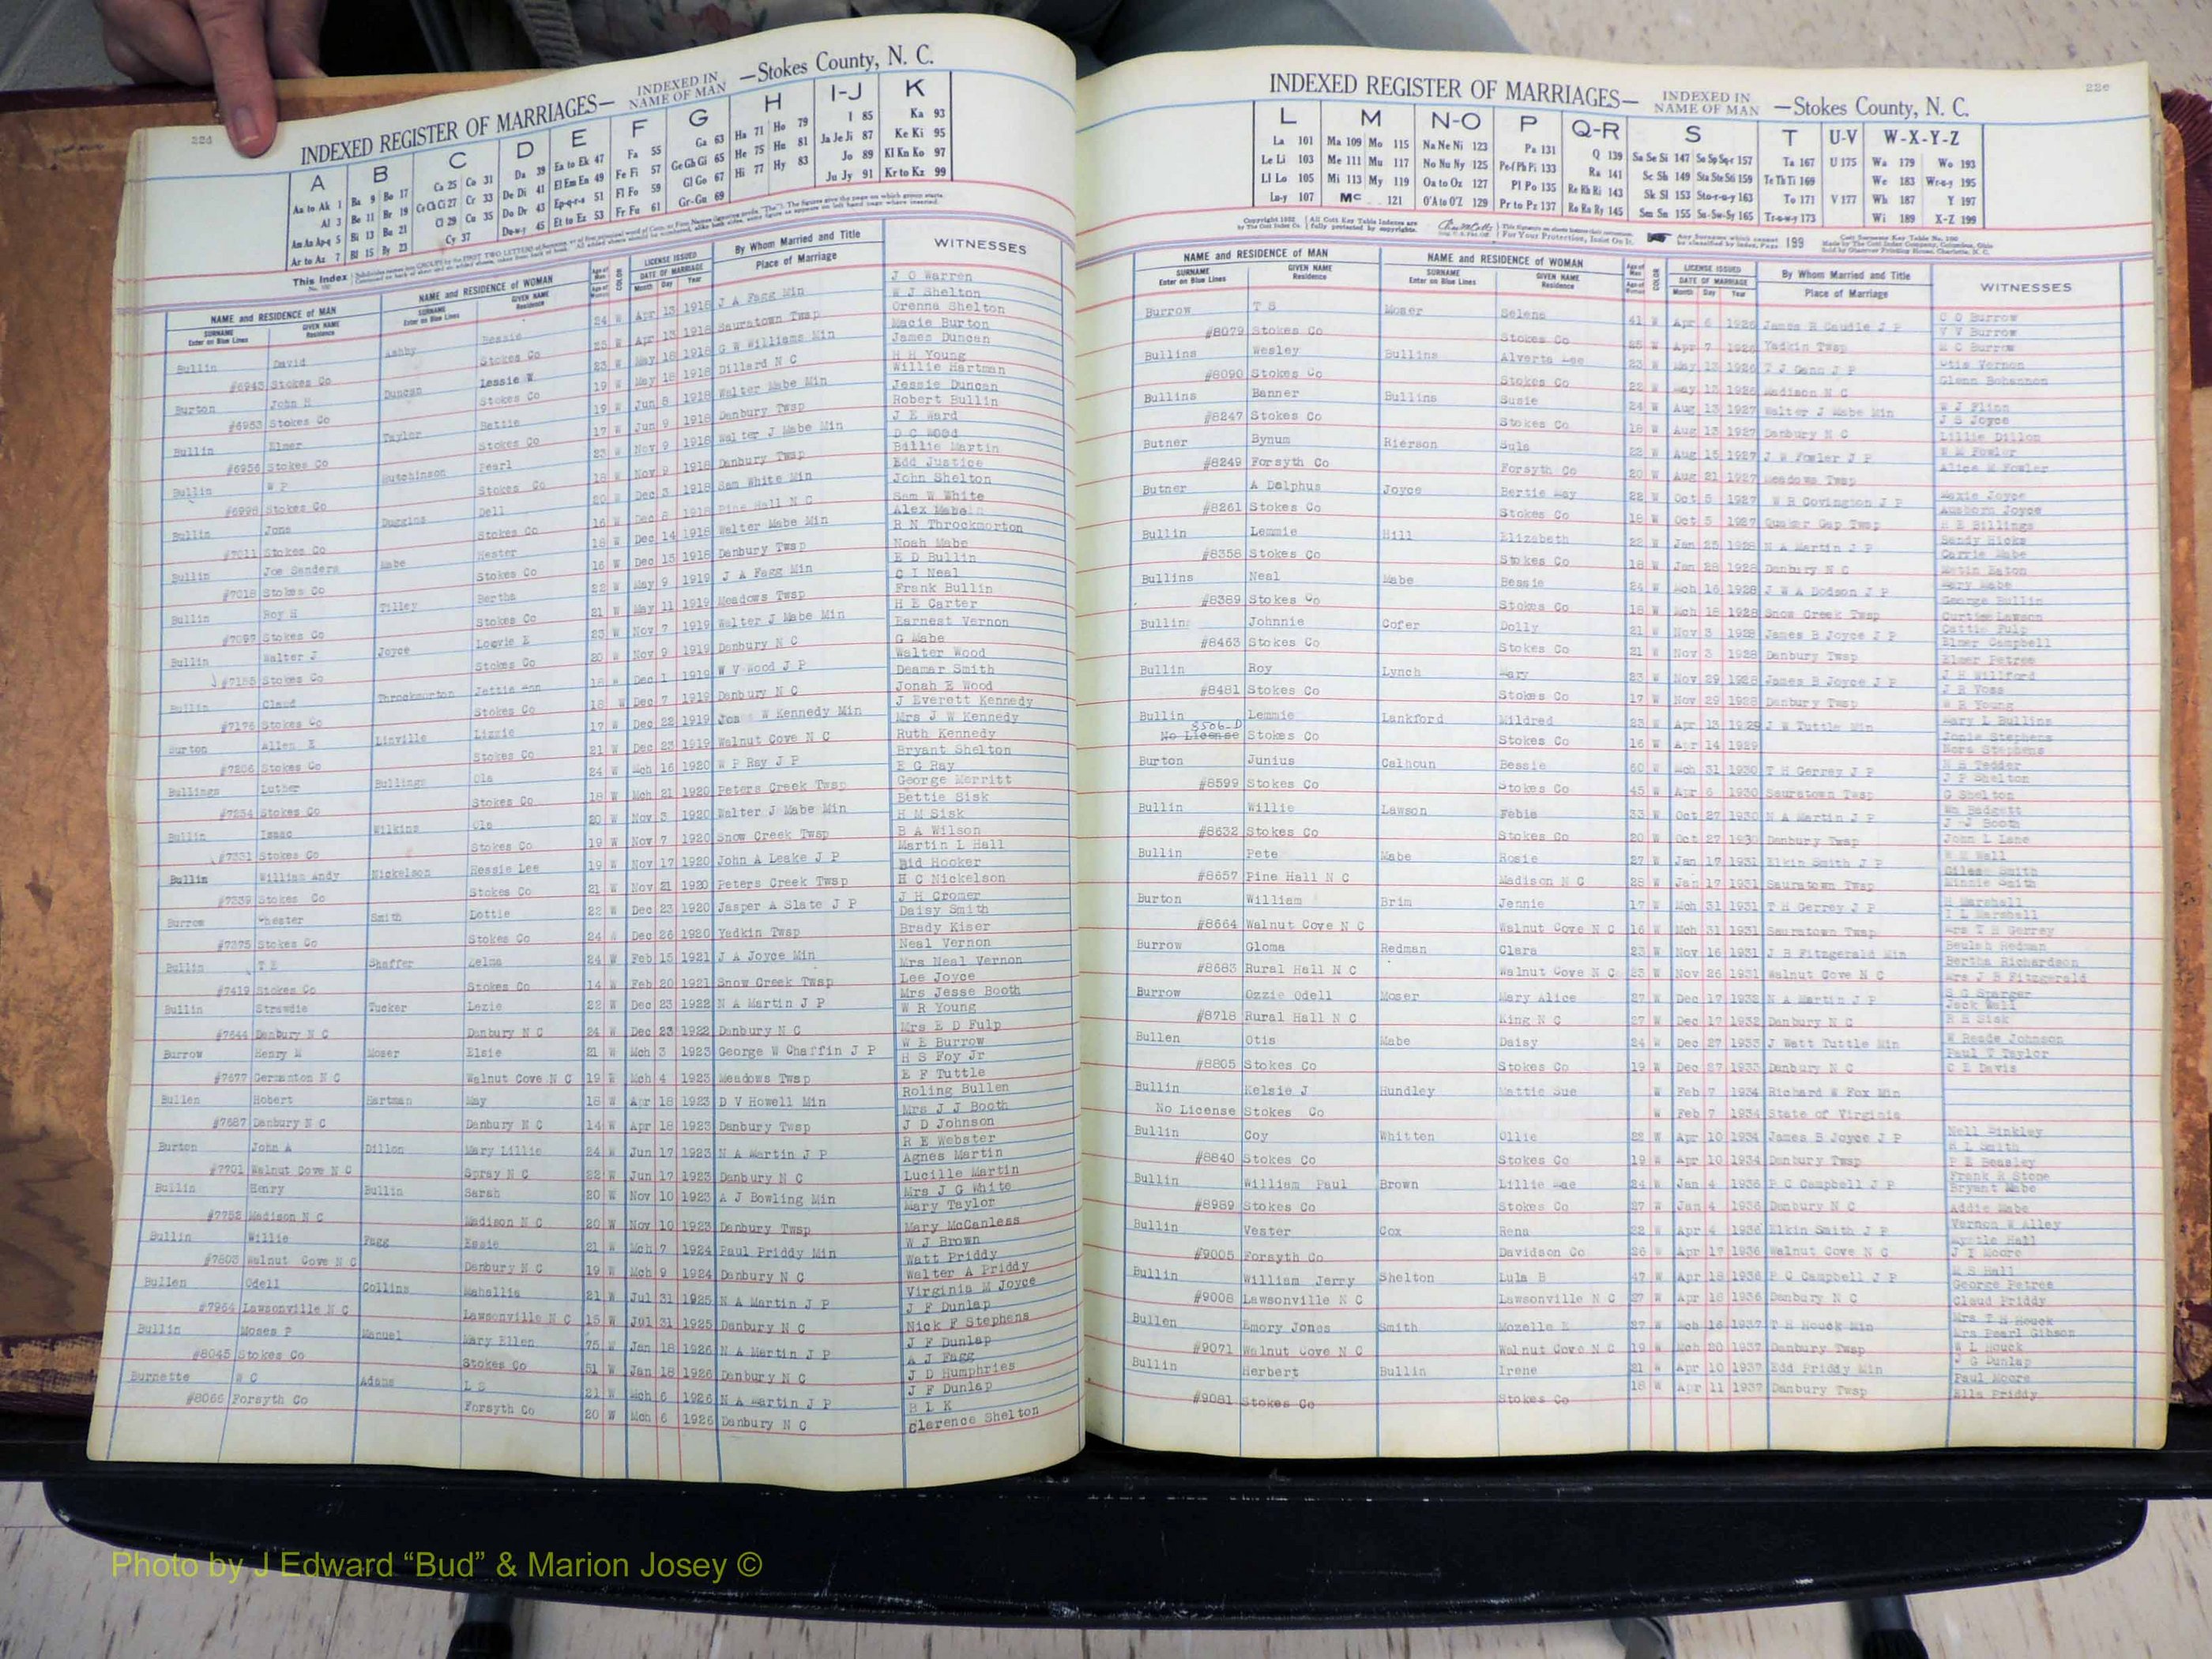 22d
INDEXED REGISTER OF MARRIAGES— INDEXED IN NAME OF MAN —Stokes County, N. C.
A B C D E F G H I-J K
Aa to Ak 1 Ba 9 Bo 17 Ca 25 Co 31 Da 39 Ea to Ek 47 Fa 55 Ga 63 Ha 71 Ho 79 I 85 Ka 93
Al 3 Be 11 Br 19 Ce Ch Ci 27 Cr 33 De Di 41 El Em En 49 Fe Fi 57 Ge Gh Gi 65 He 75 Hu 81 Ja Je Ji 87 Ke Ki 95
Am An Ap-q 5 Bi 13 Bu 21 Cl 29 Cu 35 Do Dr 43 Ep-q-r-s 51 Fl Fo 59 Gl Go 67 Hi 77 Hy 83 Jo 89 Kl Kn Ko 97
Ar to Az 7 Bl 15 By 23 Cy 37 Du-w-y 45 Et to Ez 53 Fr Fu 61 Gr-Gu 69 Ju Jy 91 Kr to Kz 99
This Index
NAME and RESIDENCE of MAN NAME and RESIDENCE of WOMAN LICENSE ISSUED By Whom Married and Title WITNESSES
SURNAME GIVEN NAME DATE OF MARRIAGE Place of Marriage
Enter on Blue Lines Residence Month Day Year
Bullin David Ashby Bessie 24 W Apr 13 1918 J A Fagg Min J O Warren
W J Shelton
#6943 Stokes Co Stokes Co 25 W Apr 13 1918 Sauratown Twsp Orenna Shelton
Burton John H Duncan Lessie W 23 W May 18 1918 G W Williams Min Macie Burton
James Duncan
#6953 Stokes Co Stokes Co 19 W May 18 1918 Dillard N C H H Young
Bullin Elmer Taylor Bettie 19 W Jun 8 1918 Walter Mabe Min Willie Hartman
Jessie Duncan
#6956 Stokes Co Stokes Co 17 W Jun 9 1918 Danbury Twsp Robert Bullin
Bullin W P Hutchinson Pearl 23 W Nov 9 1918 Walter J Mabe Min J E Ward
D C Wood
#6998 Stokes Co Stokes Co 18 W Nov 9 1918 Danbury Twsp Billie Martin
Bullin Jone Duggins Dell 20 W Dec 3 1918 Sam White Min Edd Justice
John Shelton
#7011 Stokes Co Stokes Co 16 W Dec 8 1918 Pine Hall N C Sam W White
Bullin Joe Sanders Mabe Hester 18 W Dec 14 1918 Walter Mabe Min Alex Mabe
R N Throckmorton
#7018 Stokes Co Stokes Co 16 W Dec 15 1918 Danbury Twsp Noah Mabe
Bullin Roy H Tilley Bertha 22 W May 9 1919 J A Fagg Min E D Bullin
C I Neal
#7099 Stokes Co Stokes Co 21 W May 11 1919 Meadows Twsp Frank Bullin
Bullin Walter J Joyce Loovie E 23 W Nov 7 1919 Walter J Mabe Min H E Carter
Earnest Vernon
Stokes Co Stokes Co 20 W Nov 9 1919 Danbury N C G Mabe
Bullin Claud Throckmorton Jettie Ann 18 W Dec 1 1919 W V Wood J P Walter Wood
Deamar Smith
#7176 Stokes Co Stokes Co 18 W Dec 7 1919 Danbury N C Jonah E Wood
Burton Allen E Linville Lizzie 17 W Dec 22 1919 Jos W Kennedy Min J Everett Kennedy
Mrs J W Kennedy
#7206 Stokes Co Stokes Co 21 W Dec 23 1919 Walnut Cove N C Ruth Kennedy
Bullings Luther Bullings Ola 24 W Mch 16 1920 W P Ray J P Bryant Shelton
E G Ray
#7254 Stokes Co Stokes Co 18 W Mch 21 1920 Peters Creek Twsp George Merritt
Bullin Isaac Wilkins Ola 20 W Nov 3 1920 Walter J Mabe Min Bettie Sisk
H M Sisk
#7331 Stokes Co Stokes Co 19 W Nov 7 1920 Snow Creek Twsp B A Wilson
Bullin William Andy Nickelson Hessie Lee 19 W Nov 17 1920 John A Leake J P Martin L Hall
Bid Hooker
Stokes Co Stokes Co 21 W Nov 21 1920 Peters Creek Twsp H C Nickelson
Burrow Chester Smith Lottie 22 W Dec 23 1920 Jasper A Slate J P J H Cromer
Daisy Smith
#7375 Stokes Co Stokes Co 24 W Dec 26 1920 Yadkin Twsp Brady Kiser
Bullin T E Shaffer Zelma 24 W Feb 15 1921 J A Joyce Min Neal Vernon
Mrs Neal Vernon
#7419 Stokes Co Stokes Co 14 W Feb 20 1921 Snow Creek Twsp Lee Joyce
Bullin Strawdie Tucker Lezie 22 W Dec 23 1922 N A Martin J P Mrs Jesse Booth
W R Young
#7644 Danbury N C Danbury N C 24 W Dec 23 1922 Danbury N C Mrs E D Fulp
Burrow Henry M Moser Elsie 21 W Mch 3 1923 George W Chaffin J P W E Burrow
H S Foy Jr
#7677 Germanton N C Walnut Cove N C 19 W Mch 4 1923 Meadows Twsp E F Tuttle
Bullen Hobert Hartman May 18 W Apr 18 1923 D V Howell Min Roling Bullen
Mrs J J Booth
#7687 Danbury N C Danbury N C 14 W Apr 18 1923 Danbury Twsp J D Johnson
Burton John A Dillon Mary Lillie 24 W Jun 17 1923 N A Martin J P R E Webster
Agnes Martin
#7701 Walnut Cove N C Spray N C 22 W Jun 17 1923 Danbury N C Lucille Martin
Bullin Henry Bullin Sarah 20 W Nov 10 1923 A J Bowling Min Mrs J G White
Mary Taylor
#7752 Madison N C Madison N C 20 W Nov 10 1923 Danbury Twsp Mary McCanless
Bullin Willie Fagg Essie 21 W Mch 7 1924 Paul Priddy Min W J Brown
Watt Priddy
#7803 Walnut Cove N C Danbury N C 19 W Mch 9 1924 Danbury N C Walter A Priddy
Bullen Odell Collins Mahallia 21 W Jul 31 1925 N A Martin J P Virginia M Joyce
J F Dunlap
#7964 Lawsonville N C Lawsonville N C 15 W Jul 31 1925 Danbury N C Nick F Stephens
Bullin Moses P Manuel Mary Ellen 75 W Jan 18 1926 N A Martin J P J F Dunlap
A J Fagg
#8045 Stokes Co Stokes Co 51 W Jan 18 1926 Danbury N C J D Humphries
Burnette W C Adams L S 21 W Mch 6 1926 N A Martin J P J F Dunlap
B L K
#8066 Forsyth Co Forsyth Co 20 W Mch 6 1926 Danbury N C Clarence Shelton
22e
INDEXED REGISTER OF MARRIAGES— INDEXED IN NAME OF MAN —Stokes County, N. C.
L M N-O P Q-R S T U-V W-X-Y-Z
La 101 Ma 109 Mo 115 Na Ne Ni 123 Pa 131 Q 139 Sa Se Si 147 Sa Sp Sq-r 157 Ta 167 U 175 Wa 179 Wo 193
Le Li 103 Me 111 Mu 117 No Nu Ny 125 Pe-f Ph Pi 133 Ra 141 Sc Sh 149 Sta Ste Sti 159 Te Th Ti 169 We 183 Wr-u-y 195
Ll Lo 105 Mi 113 My 119 Oa to Oz 127 Pl Po 135 Re Rh Ri 143 Sk Sl 153 Sto-r-u-y 163 To 171 V 177 Wh 187 Y 197
Lu-y 107 Mc 121 O'A to O'Z 129 Pr to Pz 137 Ro Ru Ry 145 Sm Sn 155 Su-Sw-Sy 165 Tr-u-w-y 173 Wi 189 X-Z 199
NAME and RESIDENCE of MAN NAME and RESIDENCE of WOMAN LICENSE ISSUED By Whom Married and Title WITNESSES
SURNAME GIVEN NAME SURNAME GIVEN NAME DATE OF MARRIAGE Place of Marriage
Enter on Blue Lines Residence Enter on Blue Lines Residence Month Day Year
Burrow T S Moser Selena 41 W Apr 6 1926 James R Caudle J P C O Burrow
V V Burrow
#8079 Stokes Co Stokes Co 25 W Apr 7 1926 Yadkin Twsp M C Burrow
Bullins Wesley Bullins Alverta Lee 23 W May 13 1926 T J Gann J P Otis Vernon
Glenn Bohannon
#8090 Stokes Co Stokes Co 22 W May 13 1926 Madison N C
Bullins Banner Bullins Susie 24 W Aug 13 1927 Walter J Mabe Min W J Flinn
J S Joyce
#8247 Stokes Co Stokes Co 18 W Aug 13 1927 Danbury N C Lillie Dillon
Butner Bynum Rierson Sula 22 W Aug 15 1927 J W Fowler J P W M Fowler
Alice M Fowler
#8249 Forsyth Co Forsyth Co 20 W Aug 21 1927 Meadows Twsp
Butner A Dalphus Joyce Bertie May 22 W Oct 5 1927 W R Covington J P Moxie Joyce
Ausborn Joyce
#8261 Stokes Co Stokes Co 18 W Oct 5 1927 Quaker Gap Twsp H E Billings
Bullin Lemmie Hill Elizabeth 22 W Jan 25 1928 N A Martin J P Sandy Hicks
Carrie Mabe
#8358 Stokes Co Stokes Co 18 W Jan 28 1928 Danbury N C Eaton
Bullins Neal Mabe Bessie 24 W Mch 16 1928 J W A Dodson J P Mary Mabe
George Bullin
#8389 Stokes Co Stokes Co 18 W Mch 18 1928 Snow Creek Twsp Curtis Lawson
Bullin Johnnie Cofer Dolly 21 W Nov 3 1928 James B Joyce J P Cattie Fulp
Elmer Campbell
#8463 Stokes Co Stokes Co 21 W Nov 3 1928 Danbury Twsp Elmer Petree
Bullin Roy Lynch Mary 23 W Nov 29 1928 James B Joyce J P J H Willford
J R Voss
#8481 Stokes Co Stokes Co 17 W Nov 29 1928 Danbury Twsp W R Young
Bullin Lemmie Lankford Mildred 23 W Apr 13 1929 J W Tuttle Min Mary L Bullins
8506-D
No License Stokes Co Stokes Co 16 W Apr 14 1929 Stephens
Nora Stephens
Burton Junius Calhoun Bessie 60 W Mch 31 1930 T H Gerrey J P N B Tedder
J P Shelton
#8599 Stokes Co Stokes Co 45 W Apr 6 1930 Sauratown Twsp G Shelton
Bullin Willie Lawson Febie 33 W Oct 27 1930 N A Martin J P Wm Badgett
J J Booth
#8632 Stokes Co Stokes Co 20 W Oct 27 1930 Danbury Twsp John L Lane
Bullin Pete Mabe Rosie 27 W Jan 17 1931 Elkin Smith J P Wall
Giles Smith
#8657 Pine Hall N C Madison N C 28 W Jan 17 1931 Sauratown Twsp Minnie Smith
Burton William Brim Jennie 17 W Mch 31 1931 T H Gerrey J P H Marshall
I L Marshall
#8664 Walnut Cove N C Walnut Cove N C 16 W Mch 31 1931 Sauratown Twsp Mrs T H Gerrey
Burrow Gloma Redman Clara 23 W Nov 16 1931 J B Fitzgerald Min Beulah Redman
Bertha Richardson
#8683 Rural Hall N C Walnut Cove N C 23 W Nov 26 1931 Walnut Cove N C Mrs J B Fitzgerald
Burrow Ozzie Odell Moser Mary Alice 27 W Dec 17 1932 N A Martin J P S G Sparger
Jack Wall
#8718 Rural Hall N C King N C 27 W Dec 17 1932 Danbury N C R H Sisk
Bullen Otis Mabe Daisy 24 W Dec 27 1933 J Watt Tuttle Min W Reade Johnson
Paul T Taylor
#8805 Stokes Co Stokes Co 19 W Dec 27 1933 Danbury N C C E Davis
Bullin Kelsie J Hundley Mattie Sue W Feb 7 1934 Richard W Fox Min
No License Stokes Co W Feb 7 1934 State of Virginia
Bullin Coy Whitten Ollie 22 W Apr 10 1934 James B Joyce J P Nell Binkley
H L Smith
#8840 Stokes Co Stokes Co 19 W Apr 10 1934 Danbury Twsp P E Beasley
Bullin William Paul Brown Lillie Mae 24 W Jan 4 1936 P C Campbell J P Frank R Stone
Bryant Mabe
#8989 Stokes Co Stokes Co 27 W Jan 4 1936 Danbury N C Addie Mabe
Bullin Vester Cox Rena 22 W Apr 4 1936 Elkin Smith J P Vernon W Alley
Myrtle Hall
#9005 Forsyth Co Davidson Co 26 W Apr 17 1936 Walnut Cove N C J I Moore
Bullin William Jerry Shelton Lula B 47 W Apr 18 1936 P C Campbell J P M S Hall
George Petree
#9008 Lawsonville N C Lawsonville N C 27 W Apr 18 1936 Danbury N C Claud Priddy
Bullen Emory Jones Smith Mozelle E 27 W Mch 16 1937 T H Houck Min Mrs T H Houck
Mrs Pearl Gibson
#9071 Walnut Cove N C Walnut Cove N C 19 W Mch 20 1937 Danbury Twsp W L Houck
Bullin Herbert Bullin Irene 21 W Apr 10 1937 Edd Priddy Min J G Dunlap
Paul Moore
#9081 Stokes Co Stokes Co 18 W Apr 11 1937 Danbury Twsp Ella Priddy
Photo by J Edward “Bud” & Marion Josey ©